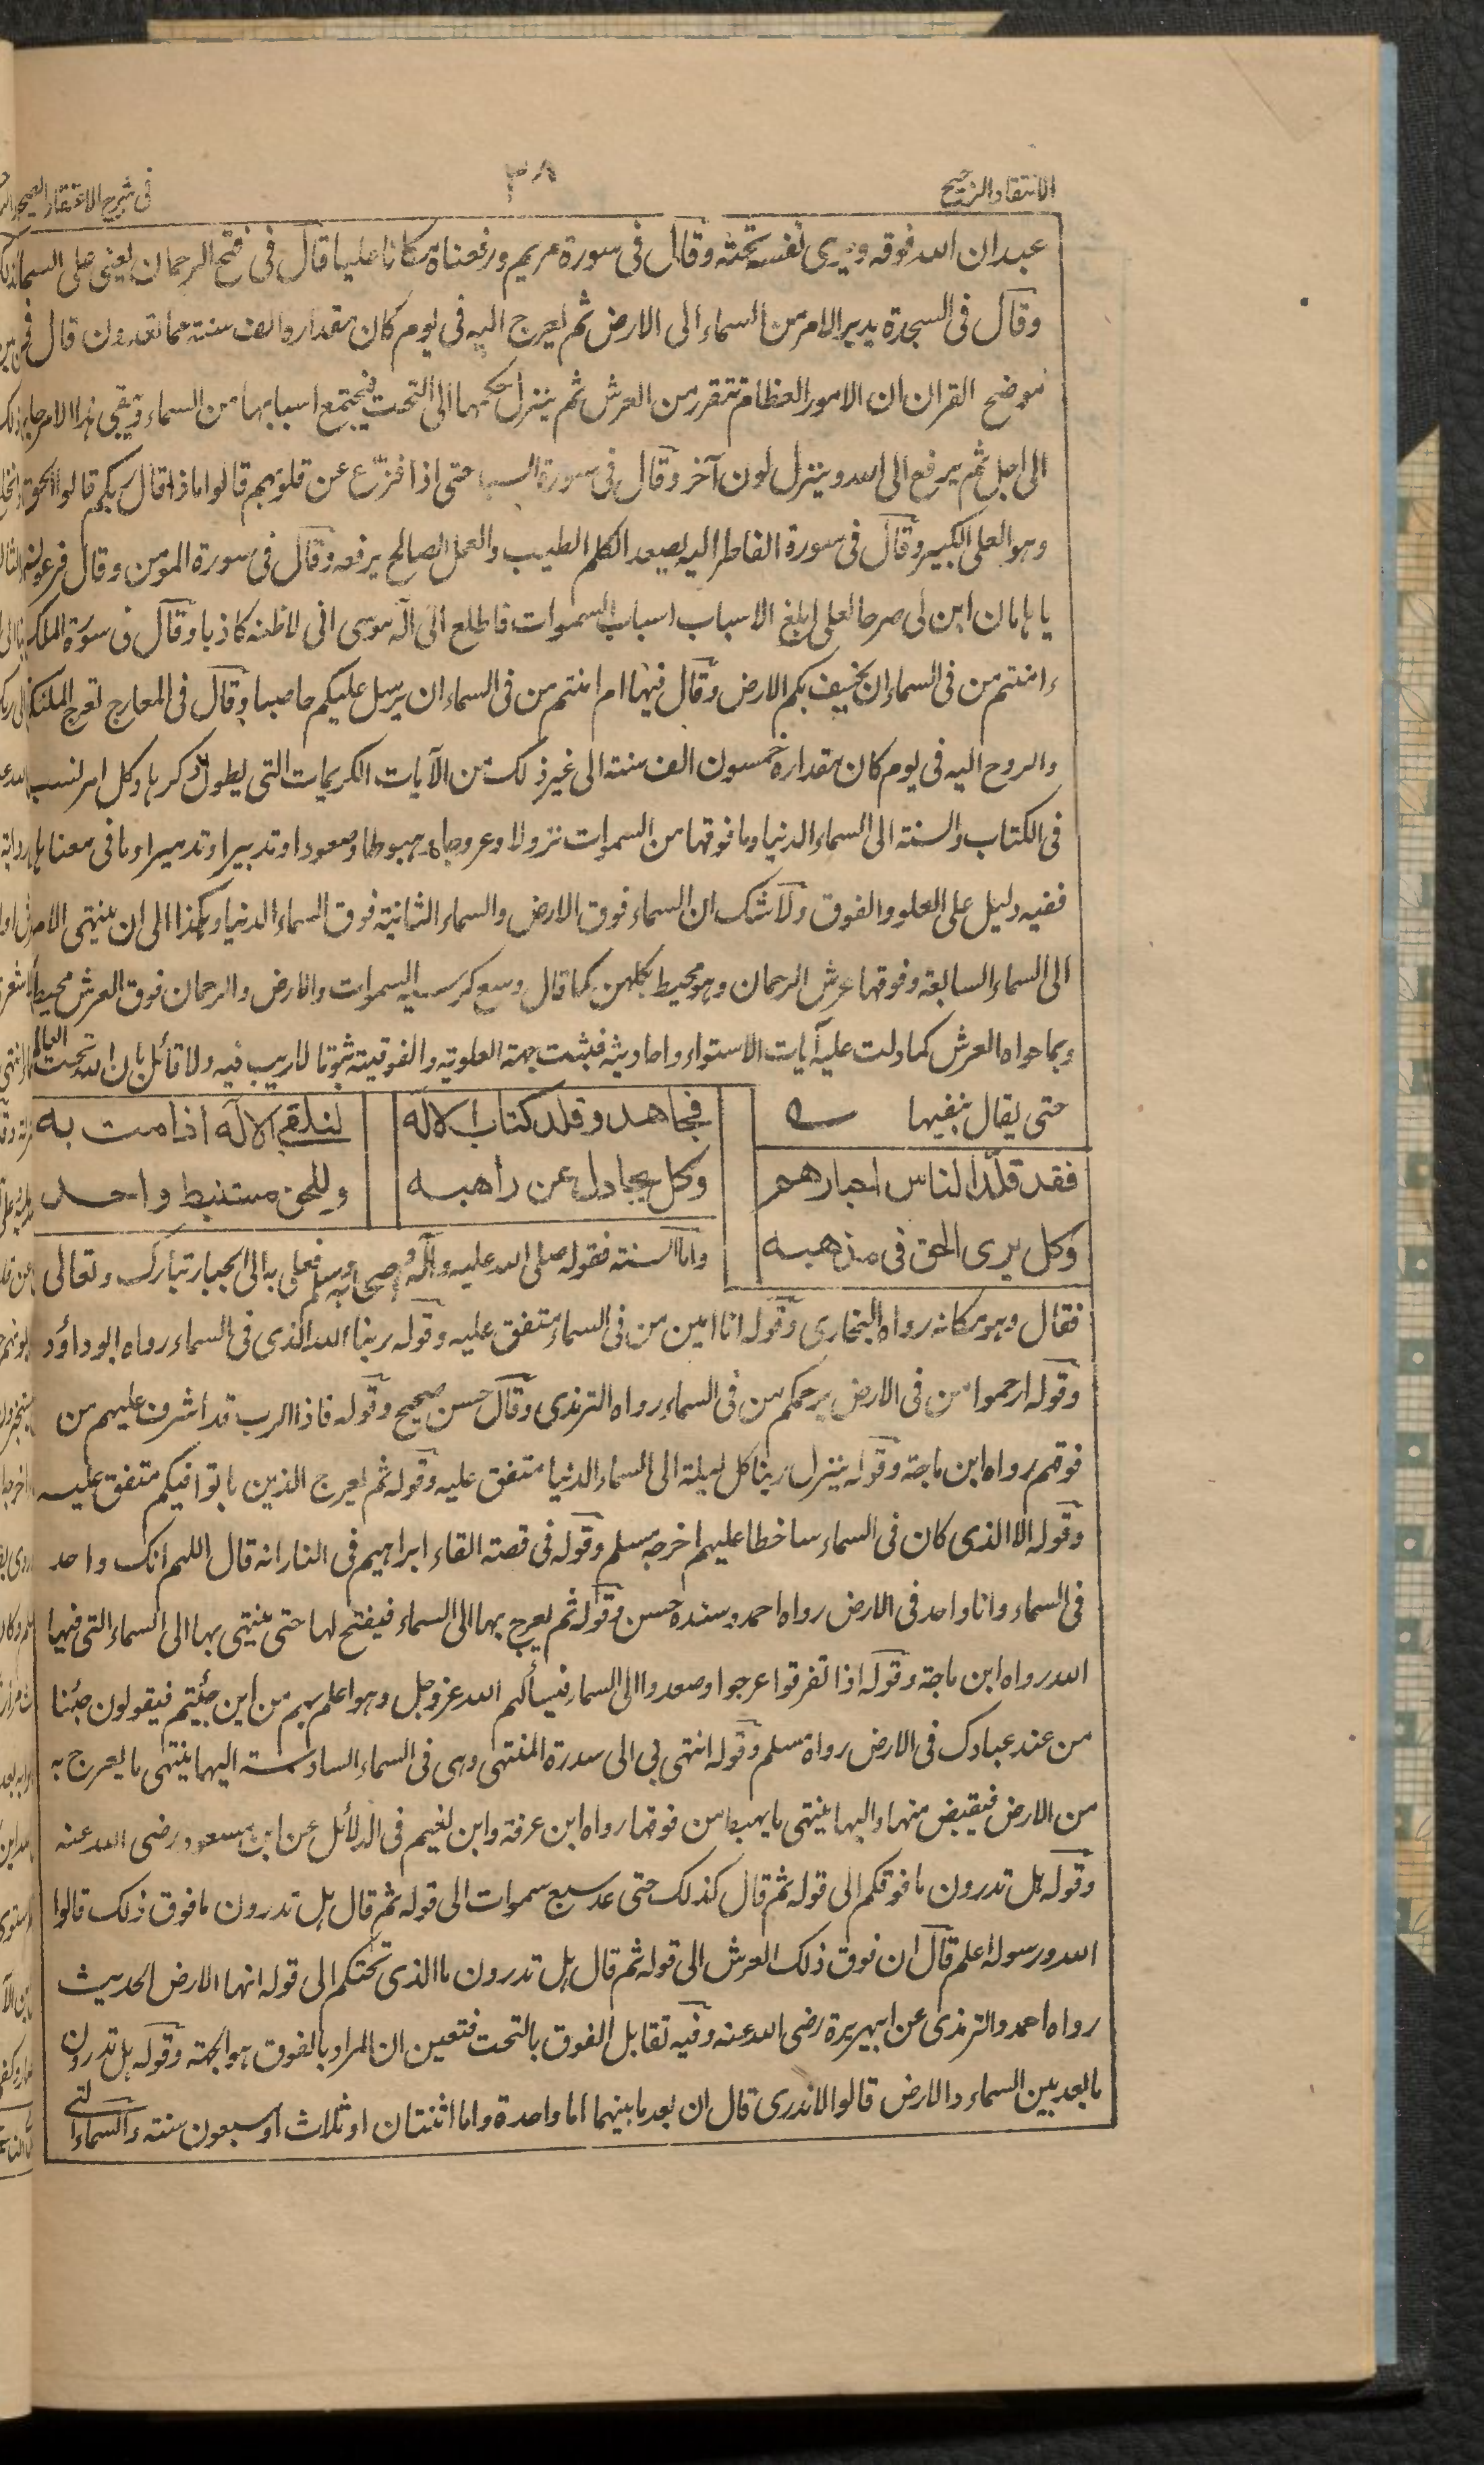 الانتقاد الرجيح
٣٨
فى شرح الاعتقاد الصحيح
عبد ان الله فوقه ويرى نفسه تحته وقال فى سورة مريم ورفعناه مكانا عليا قال فى فتح الرحمان يعنى على السماء
وقال فى السجدة يدبر الامر من السماء الى الارض ثم يعرج اليه فى يوم كان مقداره الف سنة مما تعدون قال فى
موضح القران ان الامور العظام تتقرر من العرش ثم ينزل حكمها الى التحت فيجتمع اسبابها من السماء ويبقى هذا الامر جاريا
الى اجل ثم يرفع الى الله وينزل لون آخر وقال فى سورة السبا حتى اذا فزّع عن قلوبهم قالوا ماذا قال ربكم قالوا الحق
وهو العلى الكبير وقال فى سورة الفاطر اليه يصعد الكلم الطيب والعمل الصالح يرفعه وقال فى سورة المومن وقال فرعون
يا هامان ابن لى صرحا لعلى ابلغ الاسباب اسباب السموات فاطلع الى اله موسى انى لاظنه كاذبا وقال فى سورة الملك
ءامنتم من فى السماء ان يخسف بكم الارض وقال فيها ام امنتم من فى السماء ان يرسل عليكم حاصبا وقال فى المعارج تعرج الملئكة
والروح اليه فى يوم كان مقداره خمسون الف سنة الى غير ذلك من الآيات الكريمات التى يطول ذكرها وكل امر نسب
فى الكتاب والسنة الى السماء الدنيا وما فوقها من السموات نزولا وعروجا وهبوطا وصعودا وتدبيرا وتدميرا وما فى معناها
ففيه دليل على العلو والفوق ولا شك ان السماء فوق الارض والسماء الثانية فوق السماء الدنيا وهكذا الى ان ينتهى الامر
الى السماء السابعة وفوقها عرش الرحمان وهو محيط بكلهن كما قال وسع كرسيه السموات والارض والرحمان فوق العرش محيط
وبما حواه العرش كما دلت عليه آيات الاستواء واحاديثه فثبت جهة العلوية والفوقية ثبوتا لا ريب فيه ولا قائل بان الله تحت العالم
حتى يقال بنفيها ے
فقد قلّد الناس احبارهم
وكل يرى الحق فى مذهبه
فجاهد وقلد كتاب الاله
وكل يجادل عن راهبه
لتلقى الاله اذا مت به
وللحق مستنبط واحد
واما السنة فقوله صلى الله عليه وآله وصحابه وسلم فعلى به الى الجبار تبارك وتعالى
فقال وهو مكانه رواه البخارى وقوله انا امين من فى السماء متفق عليه وقوله ربنا الله الذى فى السماء رواه ابو داؤد
وقوله ارحموا من فى الارض يرحمكم من فى السماء رواه الترمذى وقال حسن صحيح وقوله فاذا الرب قد اشرف عليهم من
فوقهم رواه ابن ماجة وقوله ينزل ربنا كل ليلة الى السماء الدنيا متفق عليه وقوله ثم يعرج الذين باتوا فيكم متفق عليه
وقوله الا الذى كان فى السماء ساخطا عليهم اخرجه مسلم وقوله فى قصة القاء ابراهيم فى النار انه قال اللهم انك واحد
فى السماء وانا واحد فى الارض رواه احمد وسنده حسن وقوله ثم يعرج بها الى السماء فيفتح لها حتى ينتهى بها الى السماء التى فيها
الله رواه ابن ماجة وقوله اذا تفرقوا عرجوا وصعدوا الى السماء فيسألهم الله عز وجل وهو اعلم بهم من اين جئتم فيقولون جئنا
من عند عبادك فى الارض رواه مسلم وقوله انتهى بى الى سدرة المنتهى وهى فى السماء السادسة اليها ينتهى ما يعرج به
من الارض فيقبض منها واليها ينتهى ما يهبط من فوقها رواه ابن عرفة وابن نعيم فى الدلائل عن ابن مسعود رضى الله عنه
وقوله هل تدرون ما فوقكم الى قوله ثم قال كذلك حتى عد سبع سموات الى قوله ثم قال هل تدرون ما فوق ذلك قالوا
الله ورسوله اعلم قال ان فوق ذلك العرش الى قوله ثم قال هل تدرون ما الذى تحتكم الى قوله انها الارض الحديث
رواه احمد والترمذى عن ابيهريرة رضى الله عنه وفيه تقابل الفوق بالتحت فتعين ان المراد بالفوق هو الجهة وقوله هل تدرون
ما بعد بين السماء والارض قالوا لا ندرى قال ان بعد ما بينهما اما واحدة واما اثنتان او ثلاث او سبعون سنة والسماء التى